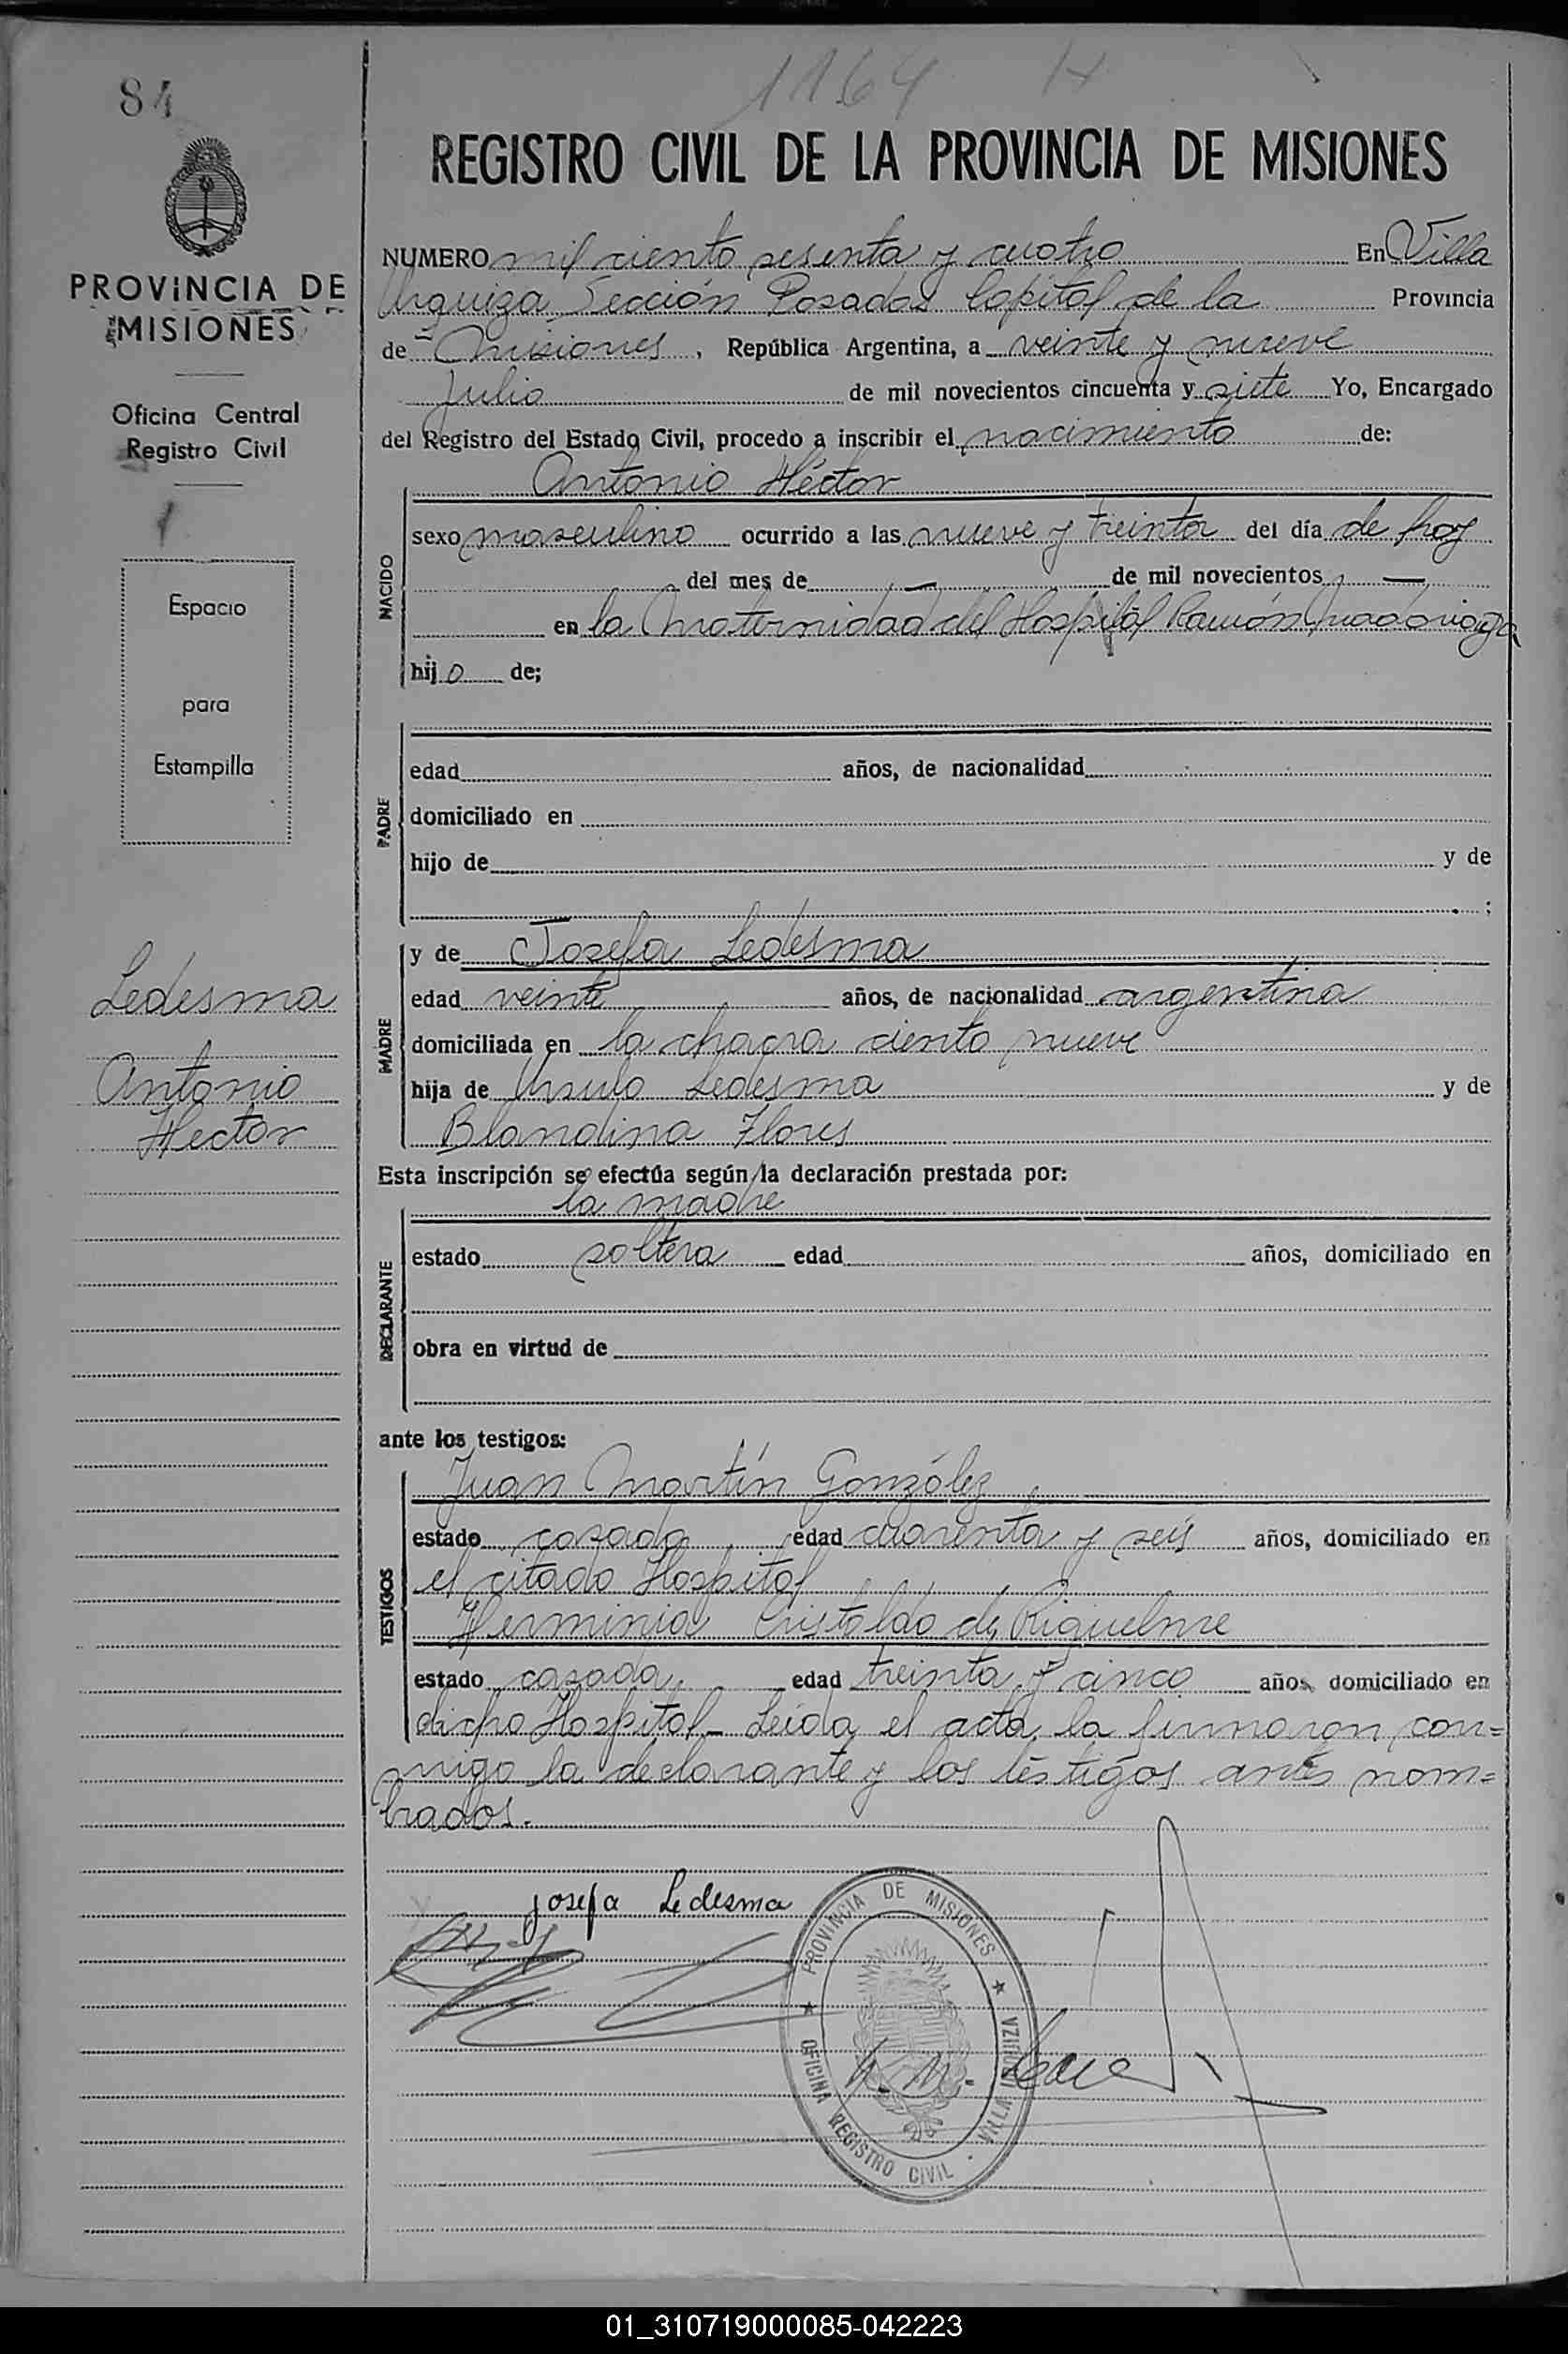 84
1164
REGISTRO CIVIL DE LA PROVINCIA DE MISIONES
PROVINCIA DE
MISIONES
Oficina Central
Registro Civil
Espacio
para
Estampilla
Ledesma
Antonio
Hector
NUMERO mil ciento sesenta y cuatro En Villa
Urquiza Sección Posadas Capital de la Provincia
de Misiones, República Argentina, a veinte y nueve
Julio de mil novecientos cincuenta y siete Yo, Encargado
del Registro del Estado Civil, procedo a inscribir el nacimiento de:
NACIDO
Antonio Héctor
sexo masculino ocurrido a las nueve y treinta del día de hoy
del mes de — de mil novecientos —
en la Maternidad del Hospital Ramón Madariaga
hijo de;
PADRE
edad años, de nacionalidad
domiciliado en
hijo de y de
;
MADRE
y de Josefa Ledesma
edad veinte años, de nacionalidad argentina
domiciliada en la chacra ciento nueve
hija de Ursulo Ledesma y de
Blandina Flores
Esta inscripción se efectúa según la declaración prestada por:
DECLARANTE
la madre
estado soltera edad años, domiciliado en
obra en virtud de
ante los testigos:
TESTIGOS
Juan Martín González
estado casado edad cuarenta y seis años, domiciliado en
el citado Hospital
Herminia Cristaldo de Riquelme
estado casada edad treinta y cinco años, domiciliado en
dicho Hospital_ Leída el acta, la firmaron con=
migo la declarante y los testigos antes nom=
brados.
Josefa Ledesma
PROVINCIA DE MISIONES
OFICINA REGISTRO CIVIL · VILLA URQUIZA
01_310719000085-042223